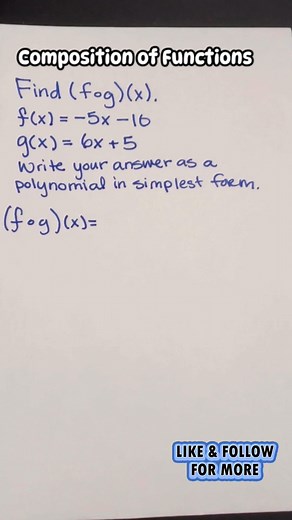 Composition of Functions
Find (f∘g)(x).
f(x) = -5x - 10
g(x) = 6x + 5
Write your answer as a
polynomial in simplest form.
(f∘g)(x)=
LIKE & FOLLOW
FOR MORE